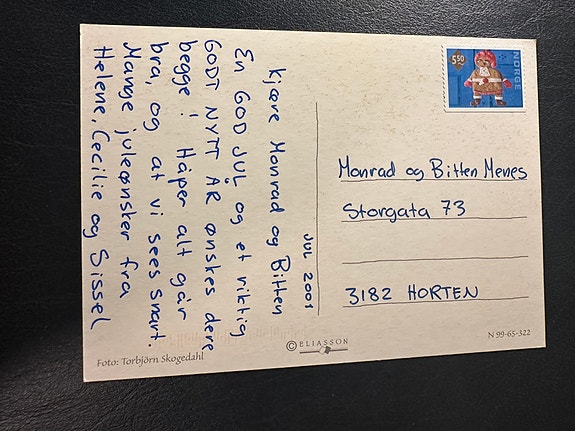 JUL 2001
Kjære Monrad og Bitten
En GOD JUL og et riktig
GODT NYTT ÅR ønskes dere
begge! Håper alt går
bra, og at vi sees snart.
Mange juleønsker fra
Helene, Cecilie og Sissel
NORGE
5,50
Monrad og Bitten Menes
Storgata 73
3182 HORTEN
Foto: Torbjörn Skogedahl
© ELIASSON
N 99-65-322